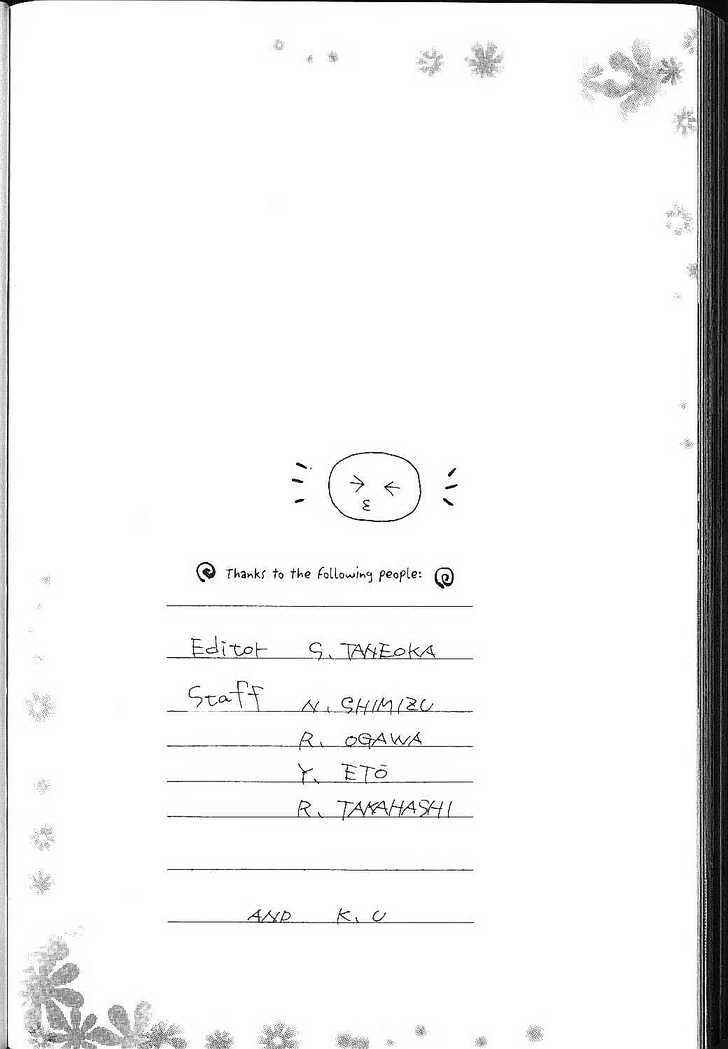 Thanks to the following people:
Editor S. TANEOKA
Staff N. SHIMIZU
R. OGAWA
Y. ETŌ
R. TAKAHASHI
AND K. U